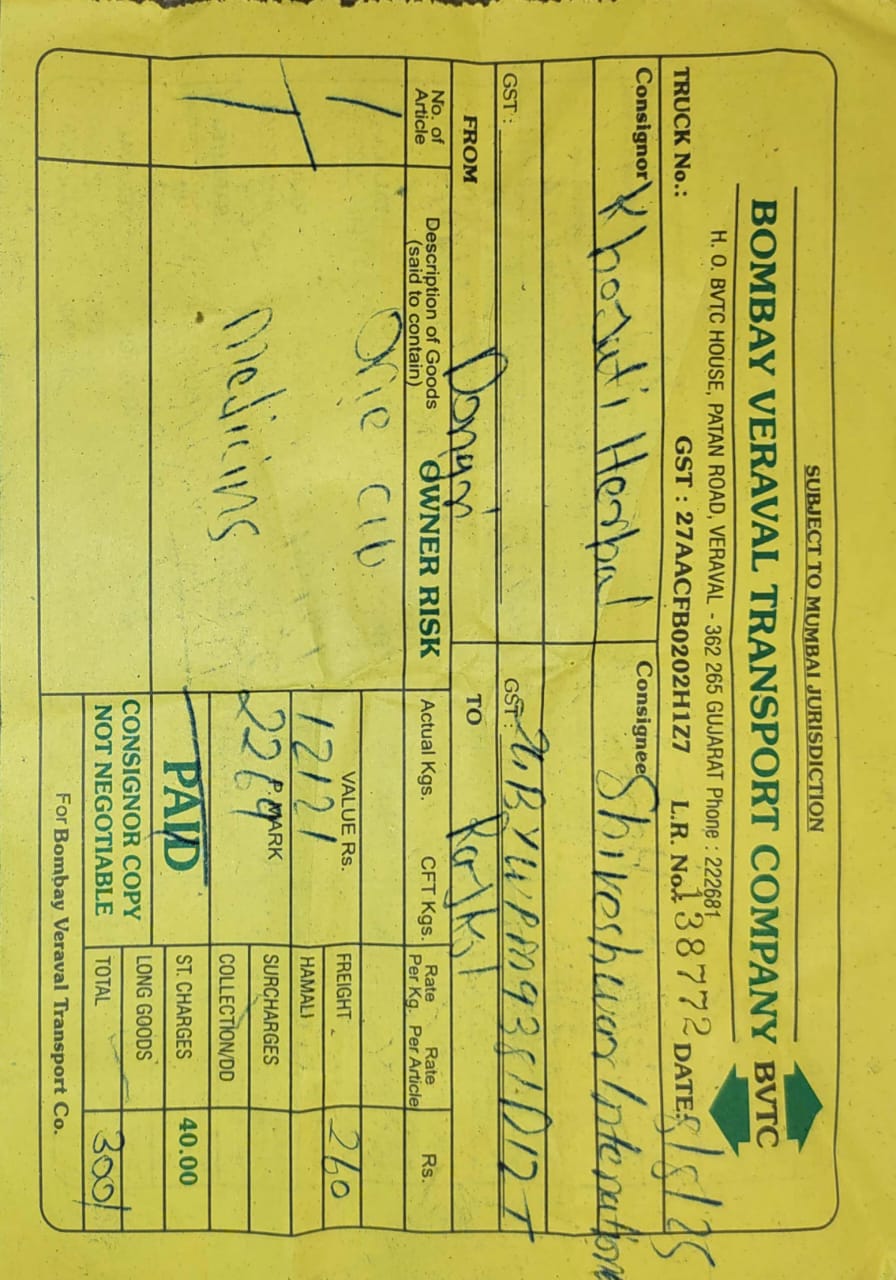 SUBJECT TO MUMBAI JURISDICTION
BOMBAY VERAVAL TRANSPORT COMPANY BVTC
H. O. BVTC HOUSE, PATAN ROAD, VERAVAL - 362 265 GUJARAT Phone : 222681
TRUCK No.: GST : 27AACFB0202H1Z7 L.R. No. 138772 DATE: 8/8/25
Consignor Khojati Herbal Consignee Shiveshwar Internation
GST : GST :
FROM Dongri TO
No. of Article Description of Goods (said to contain) OWNER RISK Actual Kgs. CFT Kgs. Rate Per Kg. Rate Per Article Rs.
1 One VALUE Rs. 12121 FREIGHT 260
HAMALI
Medicins P. MARK 2269 SURCHARGES
COLLECTION/DD
PAID ST. CHARGES 40.00
CONSIGNOR COPY LONG GOODS
NOT NEGOTIABLE TOTAL 300/
For Bombay Veraval Transport Co.